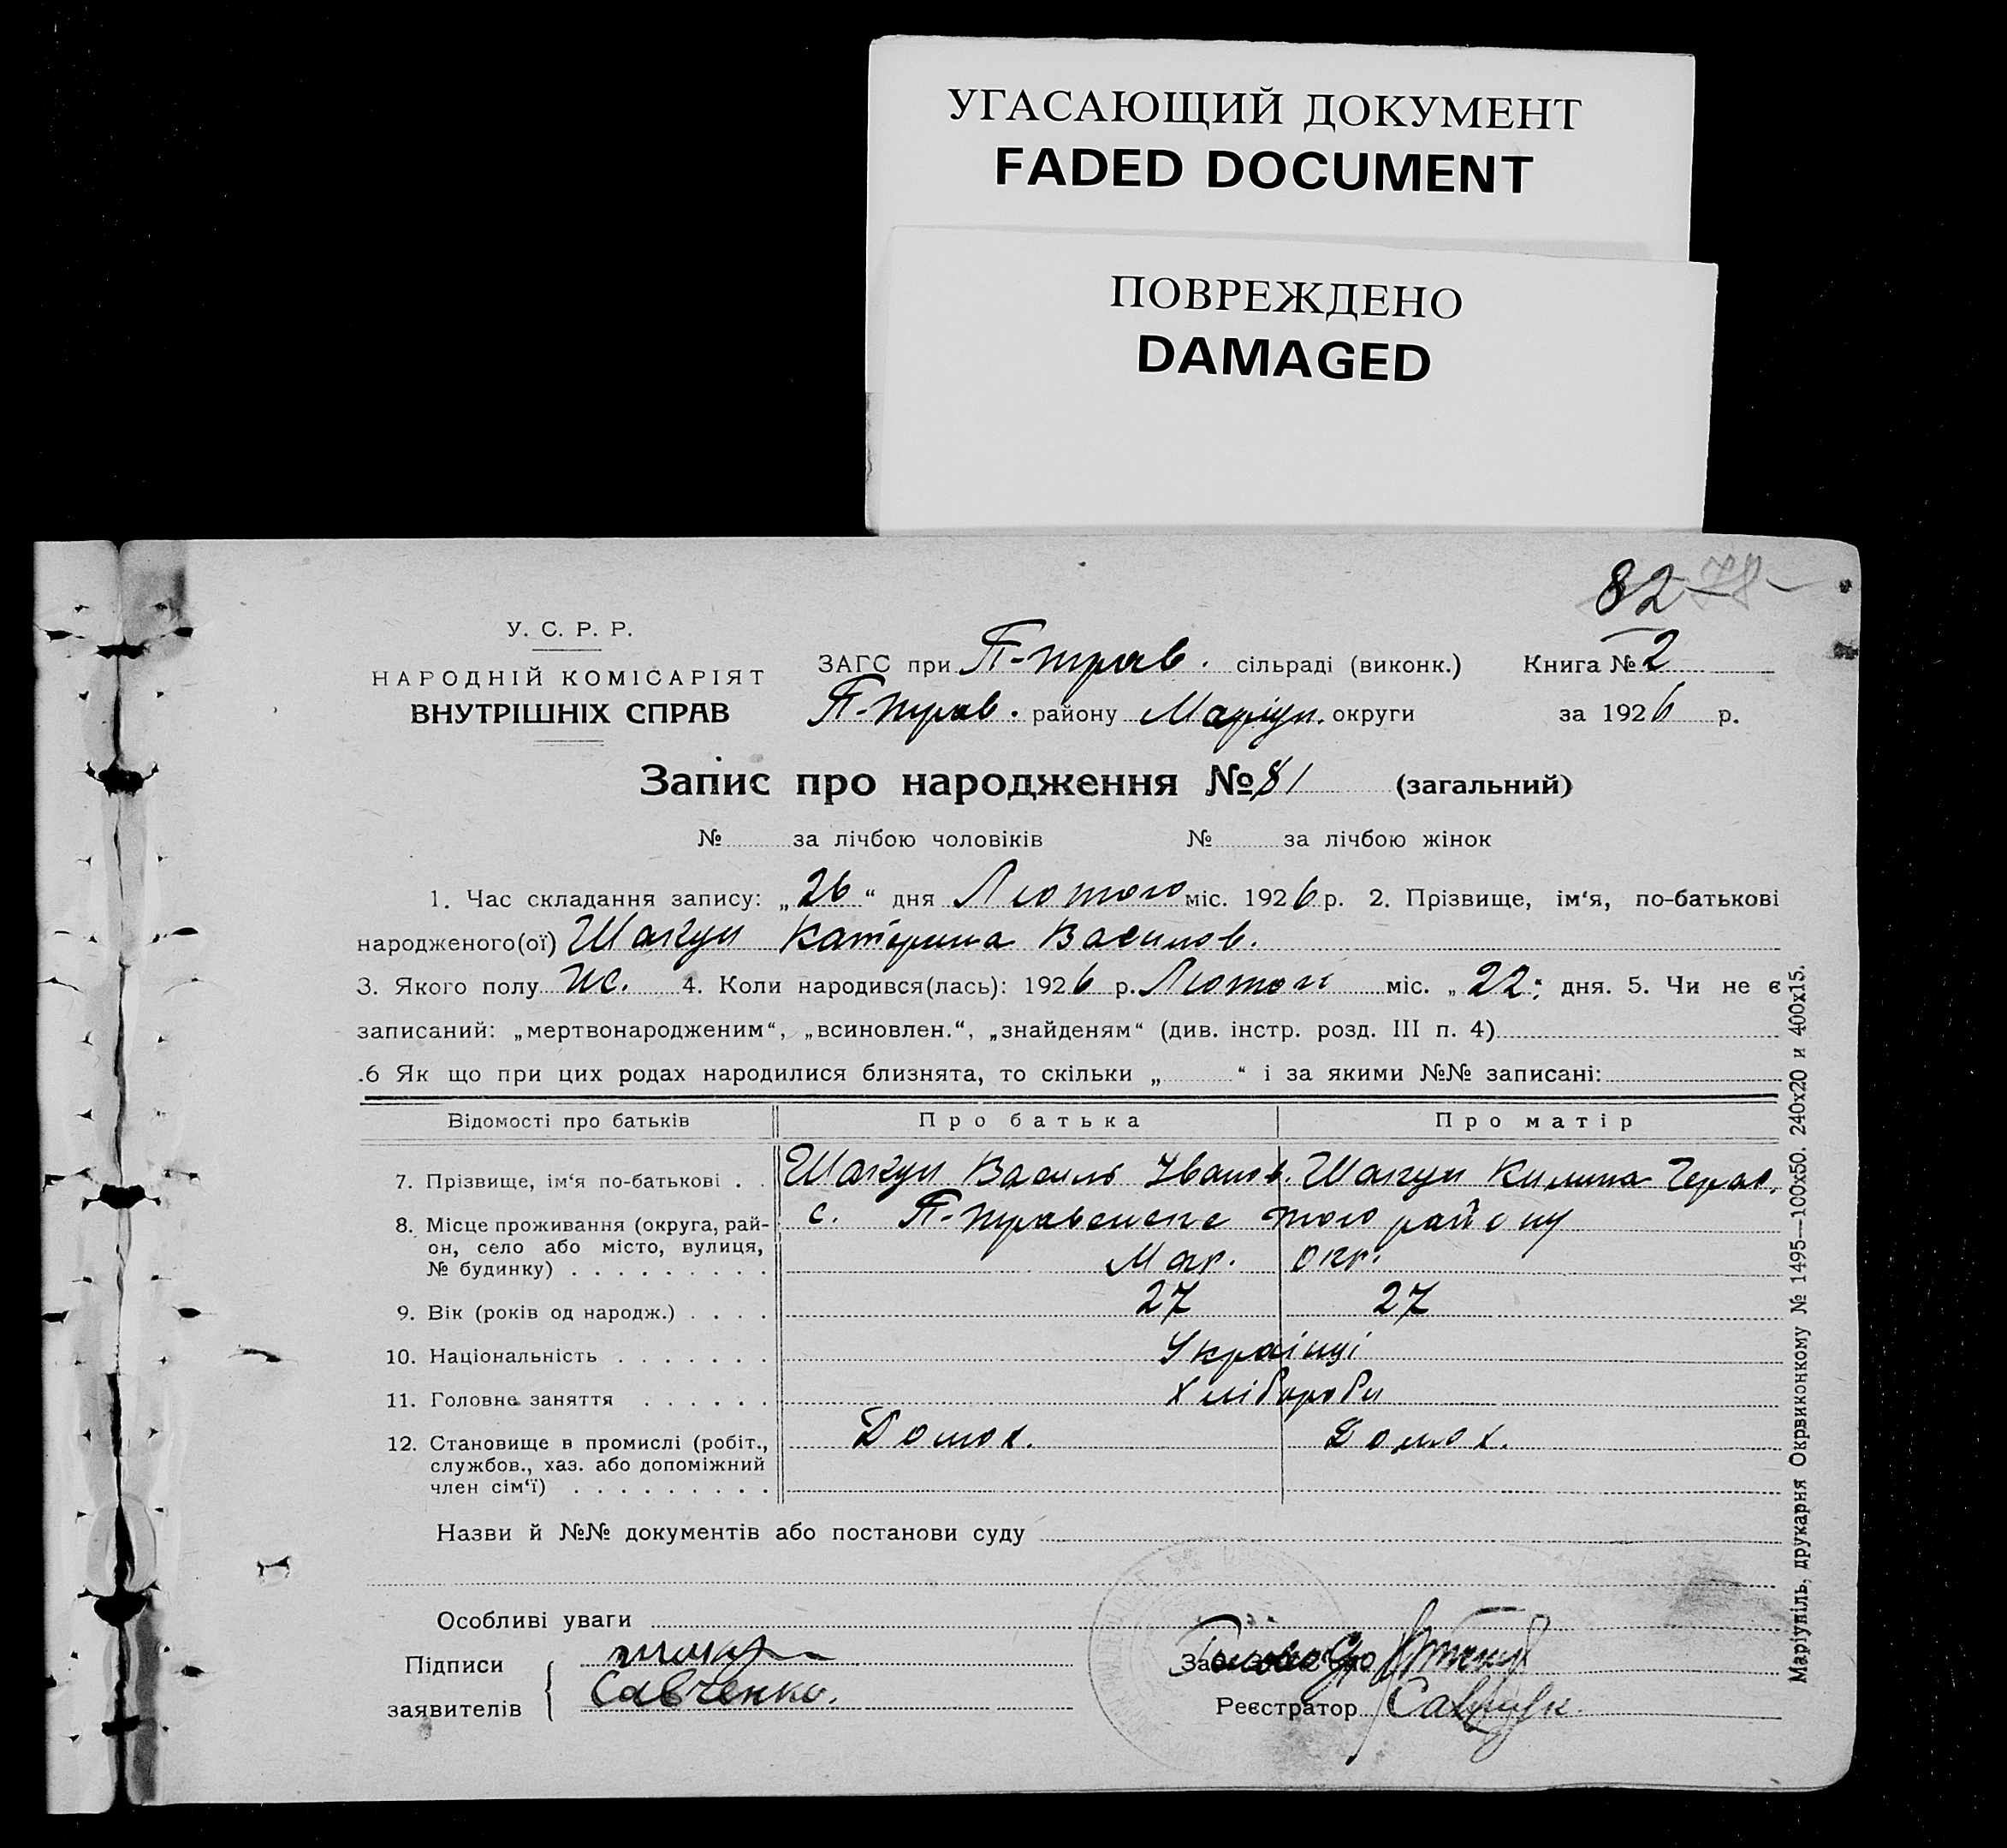 УГАСАЮЩИЙ ДОКУМЕНТ
FADED DOCUMENT
ПОВРЕЖДЕНО
DAMAGED
82 78
У. С. Р. Р.
НАРОДНІЙ КОМІСАРІЯТ
ВНУТРІШНІХ СПРАВ
ЗАГС при П-трав. сільраді (виконк.) Книга № 2
П-трав. району Маріуп. округи за 1926 р.
Запис про народження № 81 (загальний)
№ за лічбою чоловіків № за лічбою жінок
1. Час складання запису: „26“ дня Лютого міс. 1926 р. 2. Прізвище, ім‘я, по-батькові
народженого(ої) Шакун Катерина Васильов.
3. Якого полу ж. 4. Коли народився(лась): 1926 р. Лютого міс. „22“ дня. 5. Чи не є
записаний: „мертвонародженим“, „всиновлен.“, „знайденям“ (див. інстр. розд. III п. 4)
.6 Як що при цих родах народилися близнята, то скільки „ “ і за якими №№ записані:
Відомості про батьків Про батька Про матір
7. Прізвище, ім‘я по-батькові . . Шакун Василь Іванов. Шакун Килина Герас.
8. Місце проживання (округа, рай- с. П-травенське того району
он, село або місто, вулиця,
№ будинку) . . . . . . . . . Мар. окр.
9. Вік (років од народж.) . . . . 27 27
10. Національність . . . . . . . Українці
11. Головне заняття . . . . . . Хлібороби
12. Становище в промислі (робіт., Домох. Домох.
службов., хаз. або допоміжний
член сім‘ї) . . . . . . . . .
Назви й №№ документів або постанови суду
Особливі уваги
Підписи
заявителів Савченко.
Реєстратор
Маріупіль, друкарня Окрвиконкому № 1495—100х50. 240х20 и 400х15.